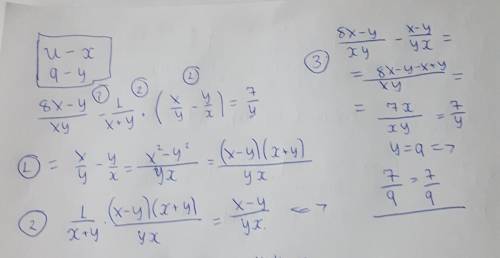 u - x
q - y
8x-y/xy - 1/x+y · (x/y - y/x) = 7/y
① = x/y - y/x = x²-y²/yx = (x-y)(x+y)/yx
② 1/x+y · (x-y)(x+y)/yx = x-y/yx. <=>
③ 8x-y/xy - x-y/yx =
= 8x-y-x+y/xy =
= 7x/xy = 7/y
y=q =>
7/q = 7/q